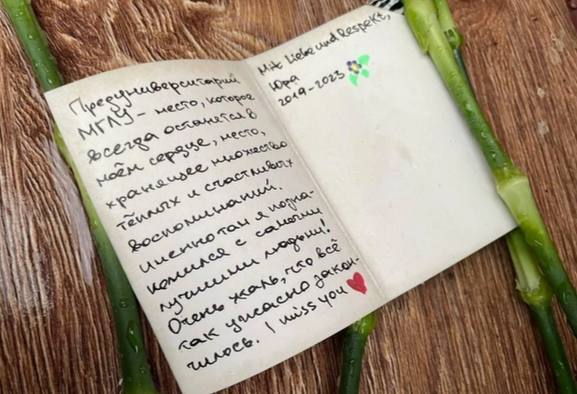 Предуниверситарий
МГЛУ – место, которое
всегда останется в
моём сердце, место,
хранящее множество
тёплых и счастливых
воспоминаний.
Именно там я позна-
комился с самыми
лучшими людьми!
Очень жаль, что всё
так ужасно закон-
чилось. I miss you ❤
Mit Liebe und Respekt,
Юра
2019-2023